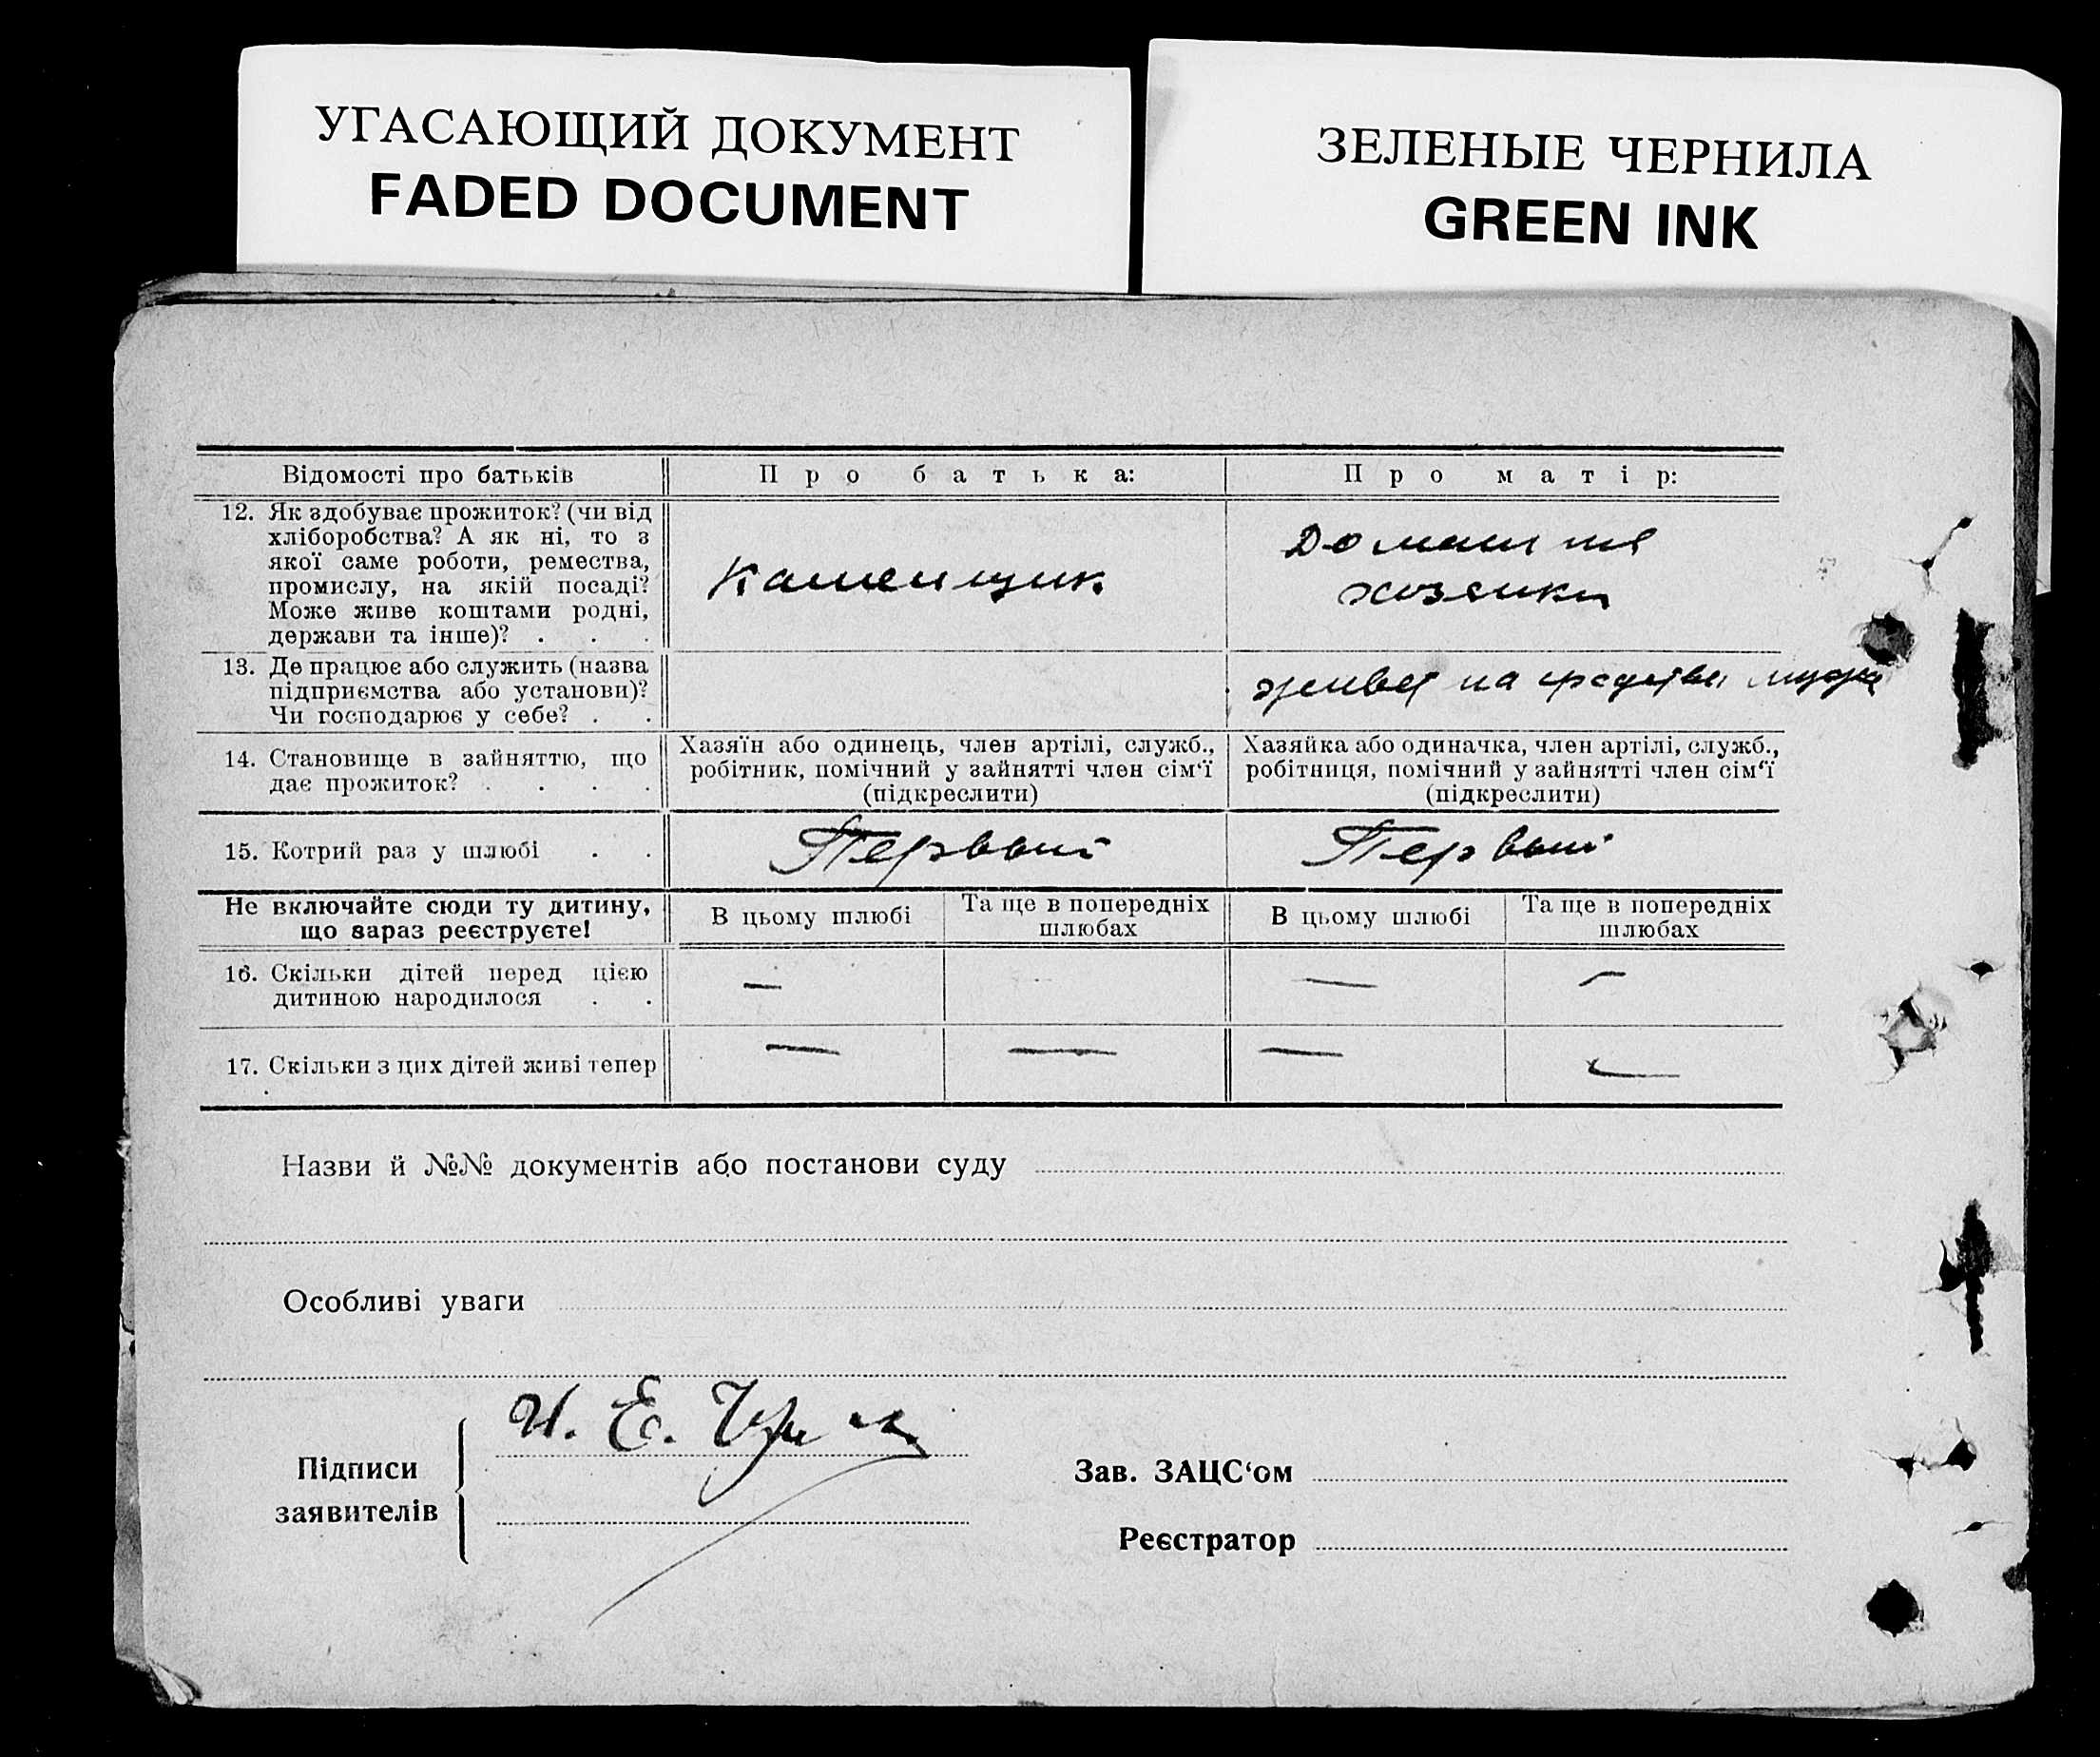 УГАСАЮЩИЙ ДОКУМЕНТ
FADED DOCUMENT
ЗЕЛЕНЫЕ ЧЕРНИЛА
GREEN INK
Відомості про батьків
Про батька:
Про матір:
12. Як здобуває прожиток? (чи від
хліборобства? А як ні, то з
якої саме роботи, ремества,
промислу, на якій посаді?
Може живе коштами родні,
держави та інше)? . . .
Каменщик
Домашня
хозяйка
13. Де працює або служить (назва
підприємства або установи)?
Чи господарює у себе? . .
живет на средства мужа
14. Становище в зайняттю, що
дає прожиток? . . . .
Хазяїн або одинець, член артілі, служб.,
робітник, помічний у зайнятті член сім‘ї
(підкреслити)
Хазяйка або одиначка, член артілі, служб.,
робітниця, помічний у зайнятті член сім‘ї
(підкреслити)
15. Котрий раз у шлюбі . .
Первый
Первый
Не включайте сюди ту дитину,
що зараз реєструєте!
В цьому шлюбі
Та ще в попередніх
шлюбах
В цьому шлюбі
Та ще в попередніх
шлюбах
16. Скільки дітей перед цією
дитиною народилося . .
— — —
17. Скільки з цих дітей живі тепер
— — — —
Назви й №№ документів або постанови суду
Особливі уваги
Підписи
заявителів
И. Е.
Зав. ЗАЦС‘ом
Реєстратор